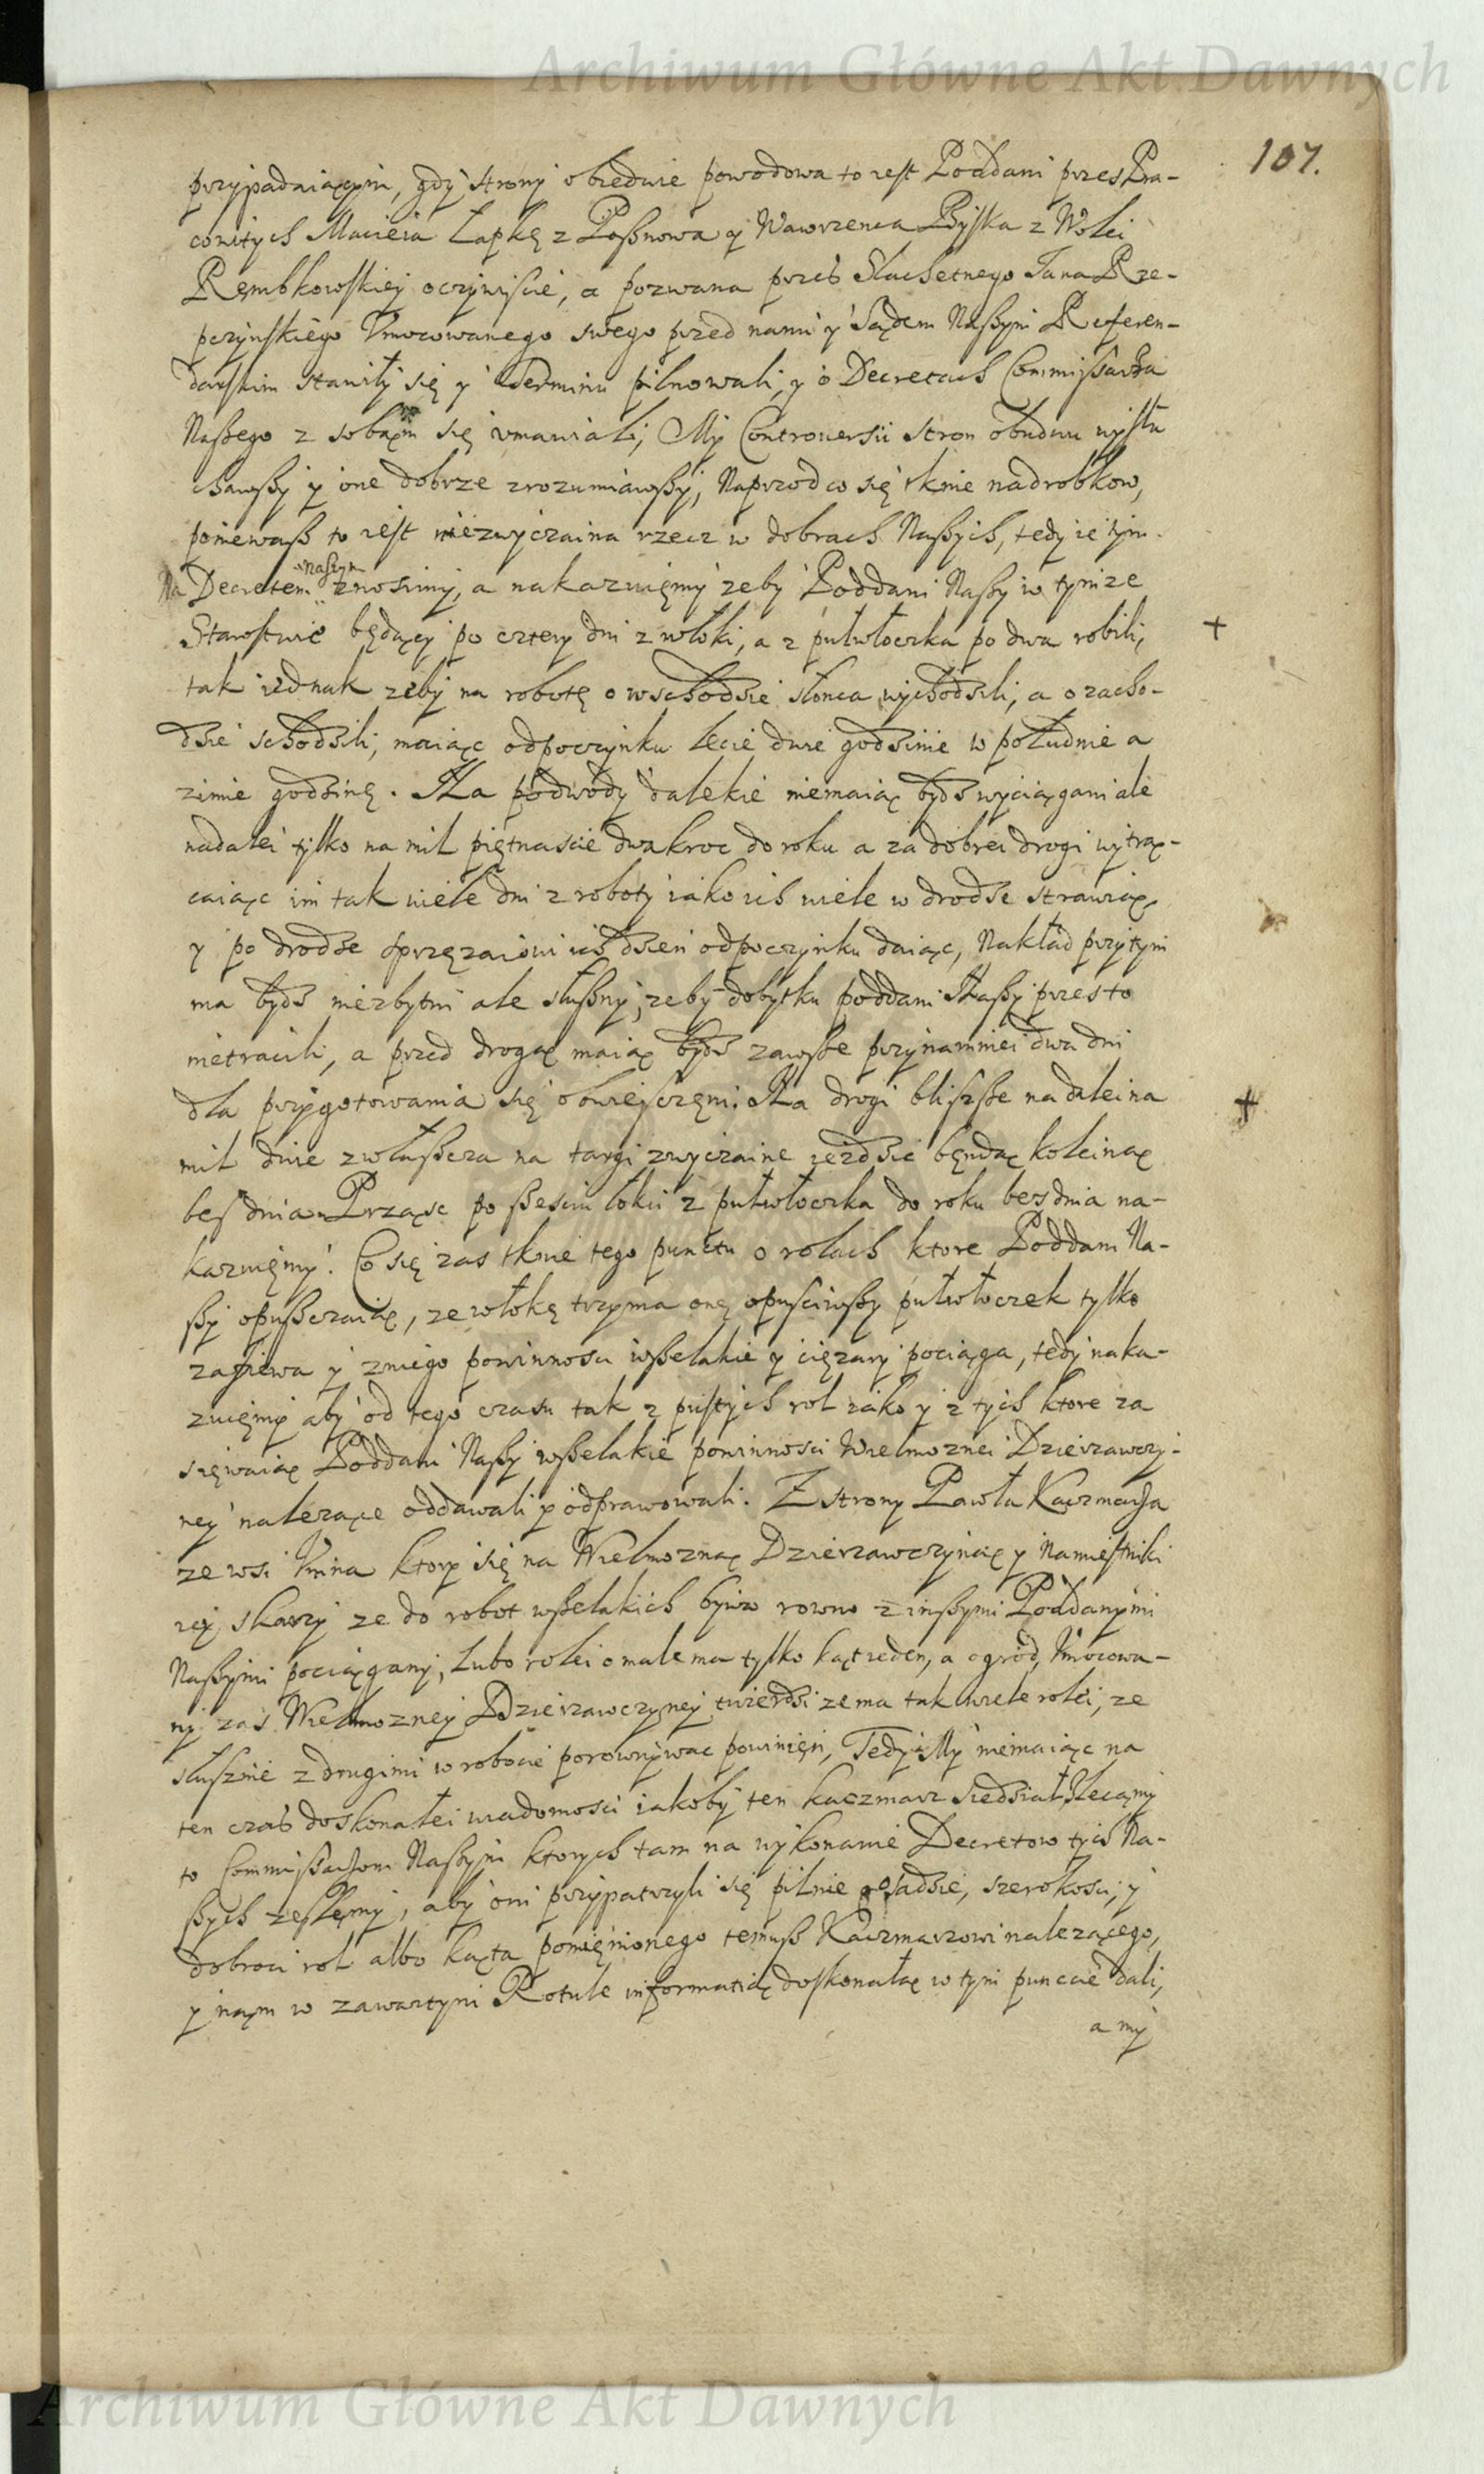 Archiwum Główne Akt Dawnych
107.
przypadaiącym, gdy strony obiedwie powodowa to iest Poddani przes Pra-
cowitych Macieia Łapkę z Paßnowa y Wawrzenca Łyska z Woli
Rembkowskiey oczywiscie, a pozwana przes Slachetnego Jana Rze-
pczynskiego Vmocowanego swego przed nami y Sądem Naßym Referen-
darskim stawiły się y Terminu pilnowali, y o Decretach Commissarza
Naßego z sobąm się vmawiali, My Controuersii stron obudwu wysłu
chawßy y one dobrze zrozumiawßy, Naprzod co się tknie nadrobkow,
poniewaß to iest niezwyczaina rzecz w dobrach Naßych, tedy ie tym
Na Decretem naßym znosimy, a nakazuięmy zeby Poddani Naßy w tymze
Starostwie będący po cztery dni z włoki, a z pułwłoczka po dwa robili,
tak iednak zeby na robotę o wschodzie słonca wychodzili, a o zacho-
dzie schodzili, maiąc odpoczynku lecie dwie godzinie w południe a
zimie godzinę. Na podwody dalekie niemaią bydz wyciągani ale
nadalei tylko na mil piętnascie dwakroc do roku a za dobrei drogi wytrą-
caiąc im tak wiele dni z roboty iako ich wiele w drodze strawią
y po drodze sprzęzaiowi ich dzien odpoczynku daiąc, Nakład przytym
ma bydz niezbytni ale słußny, zeby dobytku poddani Naßy przes to
nietracili, a przed drogą maią bydz zawßse przynamniei dwa dni
dla przygotowania się obwiesczęni. Na drogi blißße nadalei na
mil dwie zwłaßcza na targi zwyczaine iezdzic będą koleiną
bes dnia. Prząsc po ßesciu łokci z pułwłoczka do roku bes dnia na-
kazuięmy. Co się zas tknie tego punctu o rolach ktore Poddani Na-
ßy opußczaią, ze włokę trzyma onę opusciwßy pułwłoczek tylko
zasiewa y zniego powinnosci wßelakie y cięzary pociąga, tedy naka-
zuięmy aby od tego czasu tak z pustych rol iako y z tych ktore za
sięwaią Poddani Naßy wßelakie powinnosci Wielmoznei Dzierzawczy-
ney nalezące oddawali y odprawowali. Z strony Pawła Kaczmarza
ze wsi Vnina ktory się na Wielmozną Dzierzawczynią y Namiestniki
iey skarzy ze do robot wßelakich bywa rowno z inßymi Poddanymi
Naßymi pociągany, lubo rolei o male ma tylko kąt ieden, a ogrod, Vmocowa-
ny zas Wielmozney Dzierzawczyney twierdzi ze ma tak wiele rolei, ze
słusznie z drugimi w robocie porownywac powinięn, Tedy My niemaiąc na
ten czas doskonałei wiadomosci iakoby ten kaczmarz siedział, Zlecamy
to Commissarzom Naßym ktorych tam na wykonanie Decretow tych Na-
ßych ześlęmy, aby oni przypatrzyli się pilnie osadzie, szerokosci, y
dobroci rol albo kąta pomięnionego temuß Kaczmarzowi nalezącego,
y nąm w zawartym Rotule informatią doskonałą w tym puncie dali,
a my
Archiwum Główne Akt Dawnych